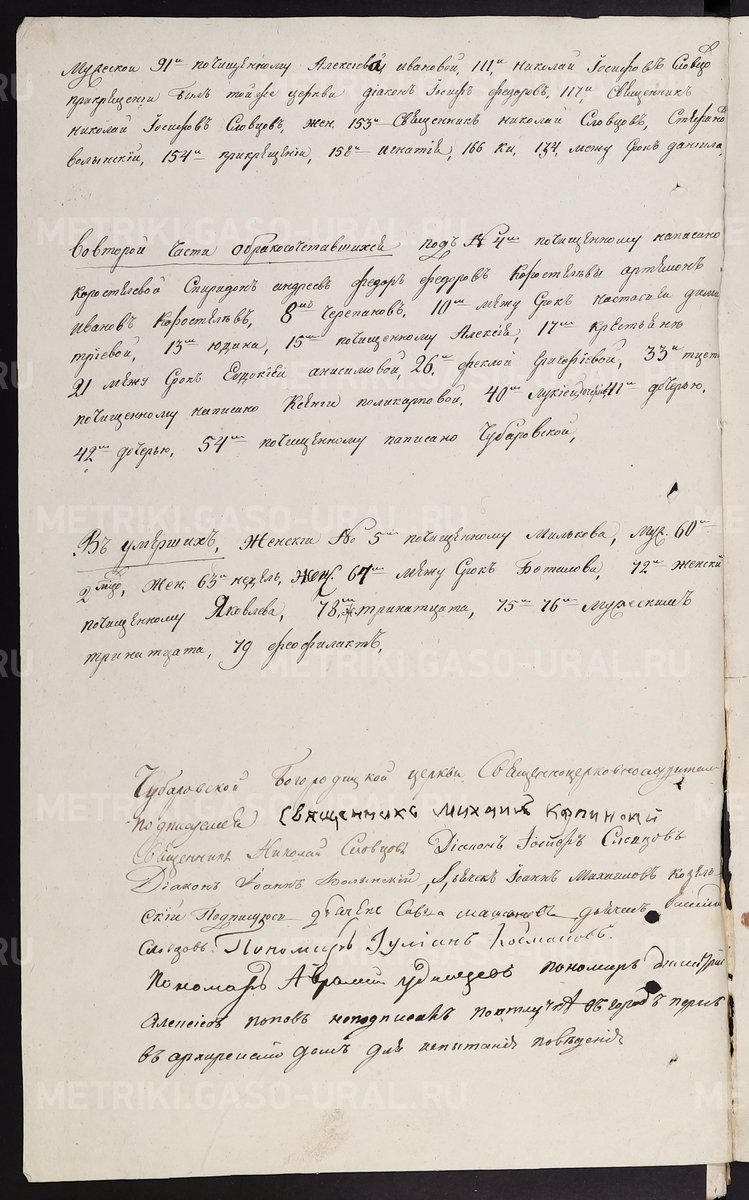 Мужескои 91м почищенному Алексіева ивановой, 111м николай Іосифовъ Словцо
прикрещеніи былъ тойже церкви діаконъ Іосифъ федоровъ, 117м Священникъ
николай Іосифовъ Словцовъ, жен. 153м Священникъ николай Словцовъ, Стефанъ
волынскій, 154м прикрещеніи, 158м игнатія, 166 ки, 134 между срокъ данила,
Вовторой части обракосочетавшихся подъ № 4м почищенному написано
коростелевой Спиридонъ андреевъ федоръ федоровъ коростелевы артемонъ
ивановъ коростелевъ, 8мъ Черепановъ, 10м между срокъ настасьи дими
тріевой, 13м юдина, 15м почищенному Алексія, 17м крестьянъ
21 между срокъ Евдокіей анисимовой, 26м феклой Григорьевой, 33м
почищенному написано Ксеніи поликарповой, 40м лукіе 41м дочерью,
42м дочерью, 54м почищенному написано Чубаровской,
Въ умершихъ, женскіи № 5м почищенному Милькова, муж. 60м
2 лицо, жен. 63м недель, жен. 67м между срокъ Ботилова, 72м женскій
почищенному Яковлева, 78м тринатцата, 75м 76м мужескимъ
тринатцата, 79 феофилактъ,
Чубаровской Богородицкой церкви Священноцерковнослужители
подписуемся Священникъ Михаилъ Капинскій
Священникъ Николай Словцовъ Діаконъ Іосифъ Словцовъ
Діаконъ Іоаннъ Волынскій, Дьячекъ Іоаннъ Михаиловъ козель
скій Подписуюсь дьячекъ Савва дьячекъ василій
Словцовъ. Пономарь Іуліанъ Космаковъ.
Пономарь Аврамій удинцовъ пономарь димитрій
Алексіевъ поповъ неподписалъ поотлучкѣ въ городъ пермь
въ архирейскій домъ для испытанія поведенія
METRIKI.GASO-URAL.RU